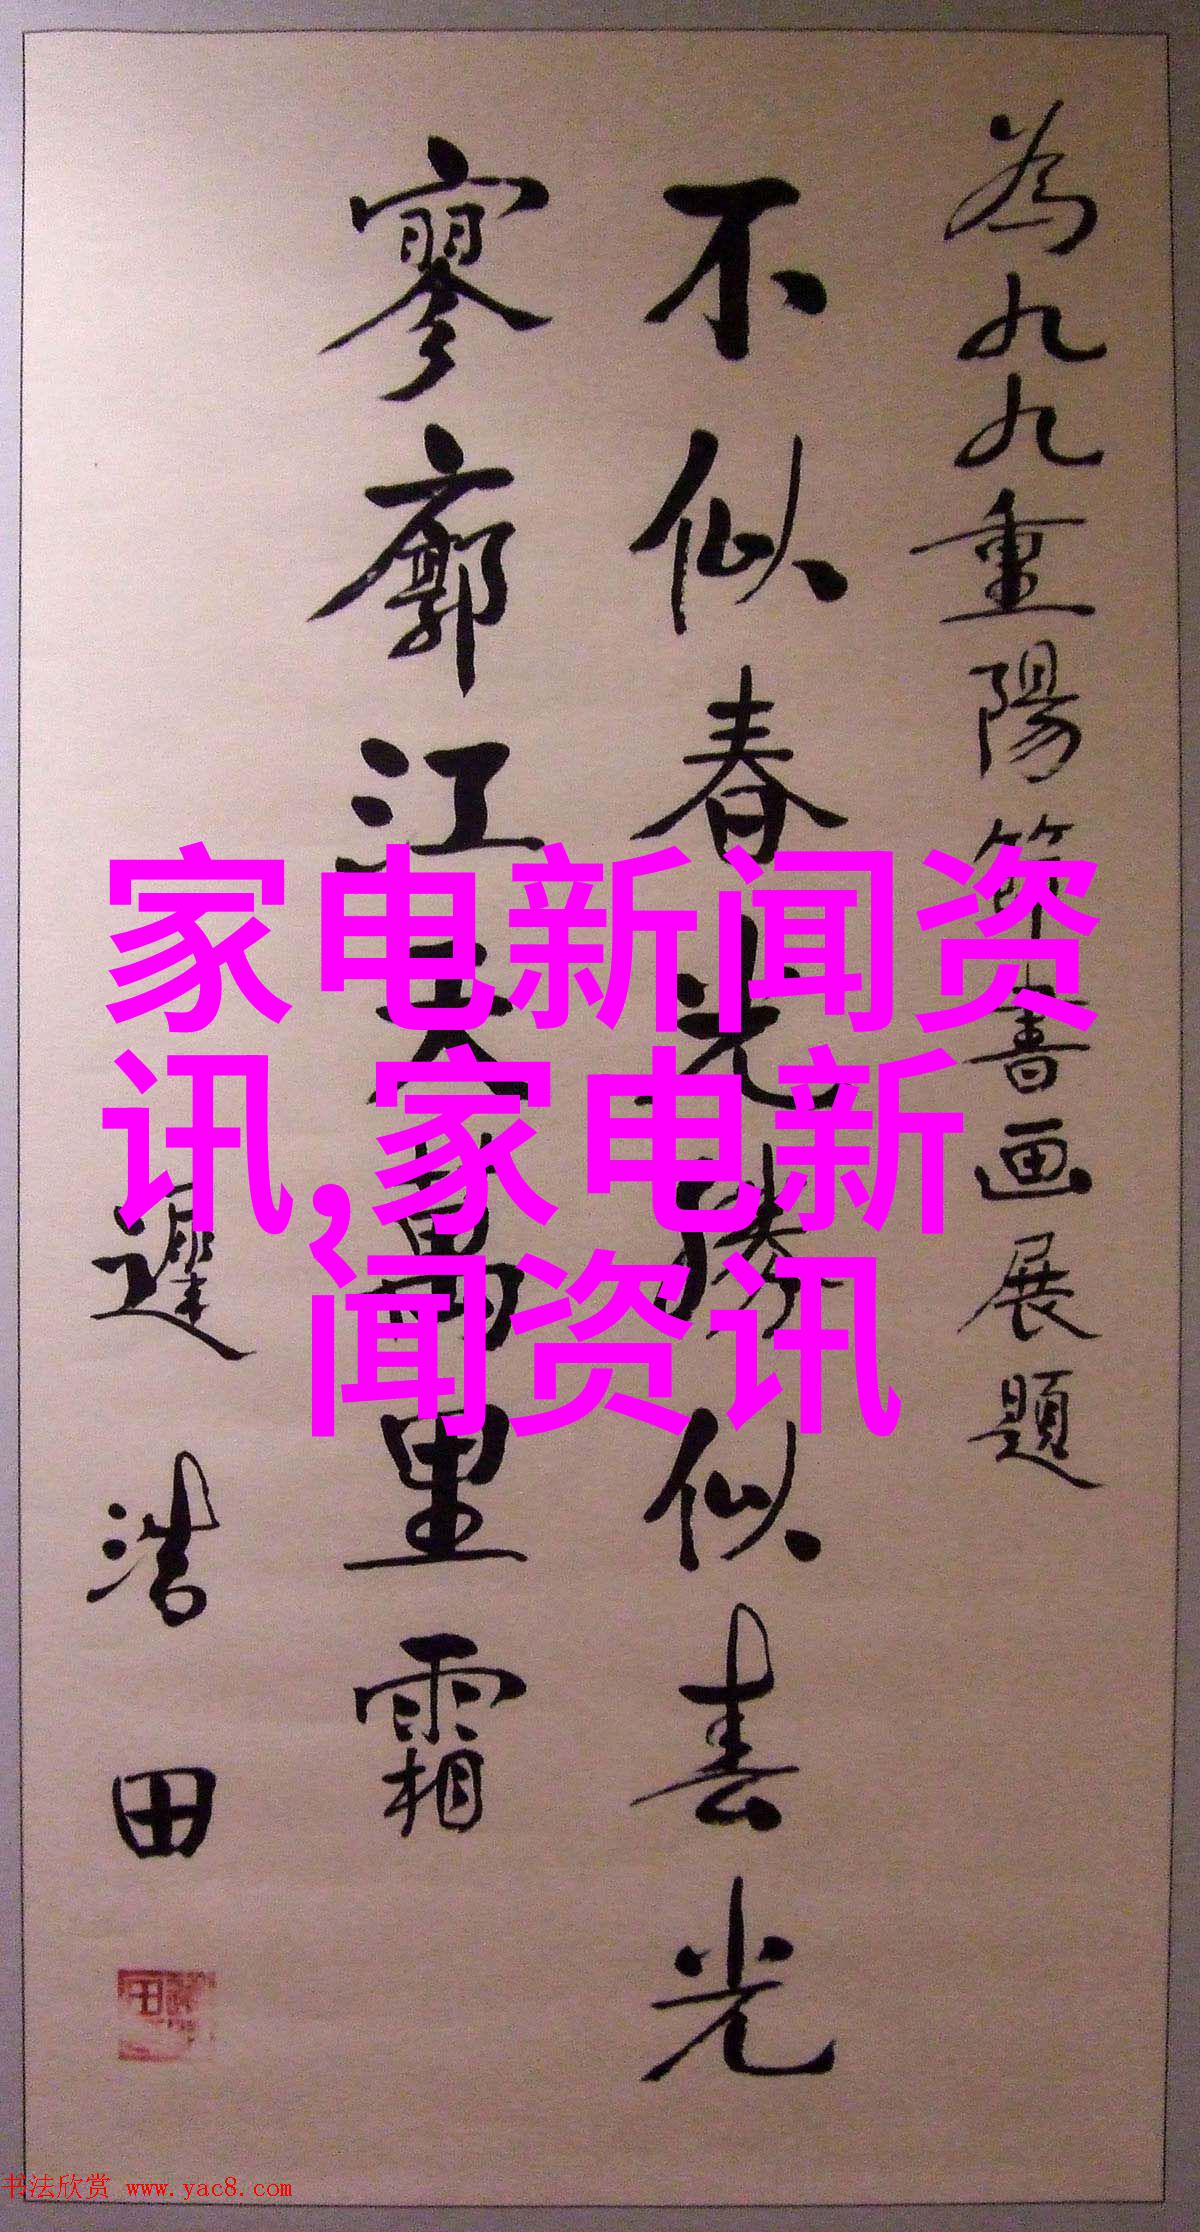 為九九重陽節書画展題
不似春光勝似春光
寥廓江天萬里霜
遲浩田
家电新闻资
讯,家电新
闻资讯
书法欣赏 www.yac8.com